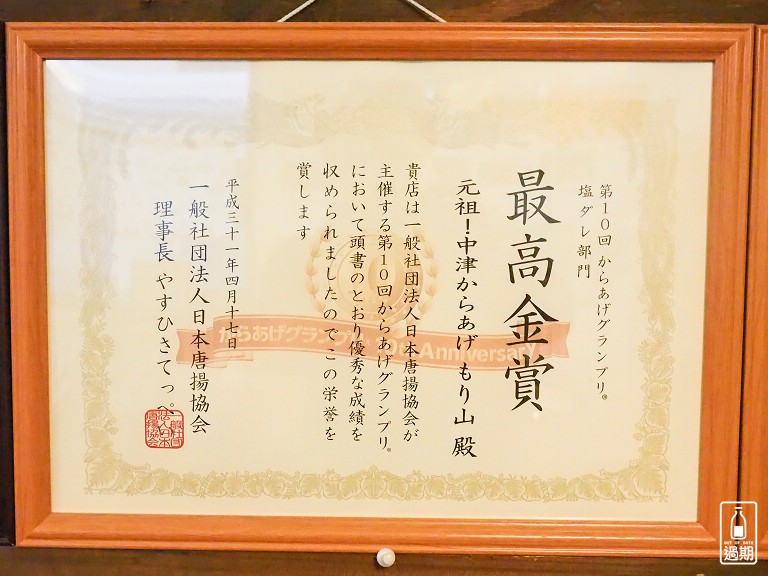 第10回 からあげグランプリ®
塩ダレ部門
最高金賞
元祖！中津からあげ もり山 殿
貴店は一般社団法人日本唐揚協会が
主催する第10回からあげグランプリ®
において頭書のとおり優秀な成績を
収められましたのでこの栄誉を
賞します
平成三十一年四月十七日
一般社団法人日本唐揚協会
理事長 やすひさてっぺい
一般社団
法人日本
唐揚協会
からあげグランプリ 10th Anniversary
OUT OF DATE
過期